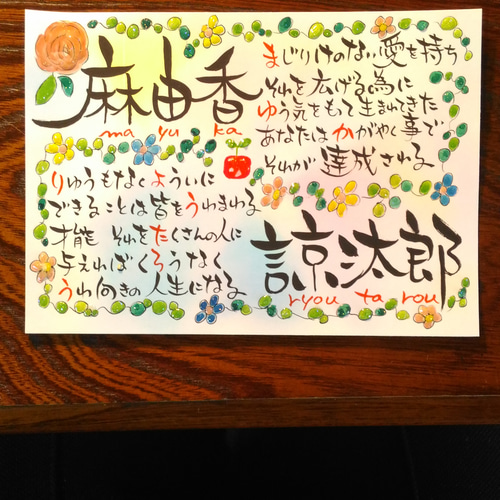 麻由香
ma yu ka
まじりけのない愛を持ち
それを広げる為に
ゆう気をもって生まれてきた
あなたはかがやく事で
それが達成される
りゅうもなくよういに
できることは皆をうわまわる
才能 それをたくさんの人に
与えればくろうなく
うわ向きの人生になる
諒汰郎
ryou ta rou